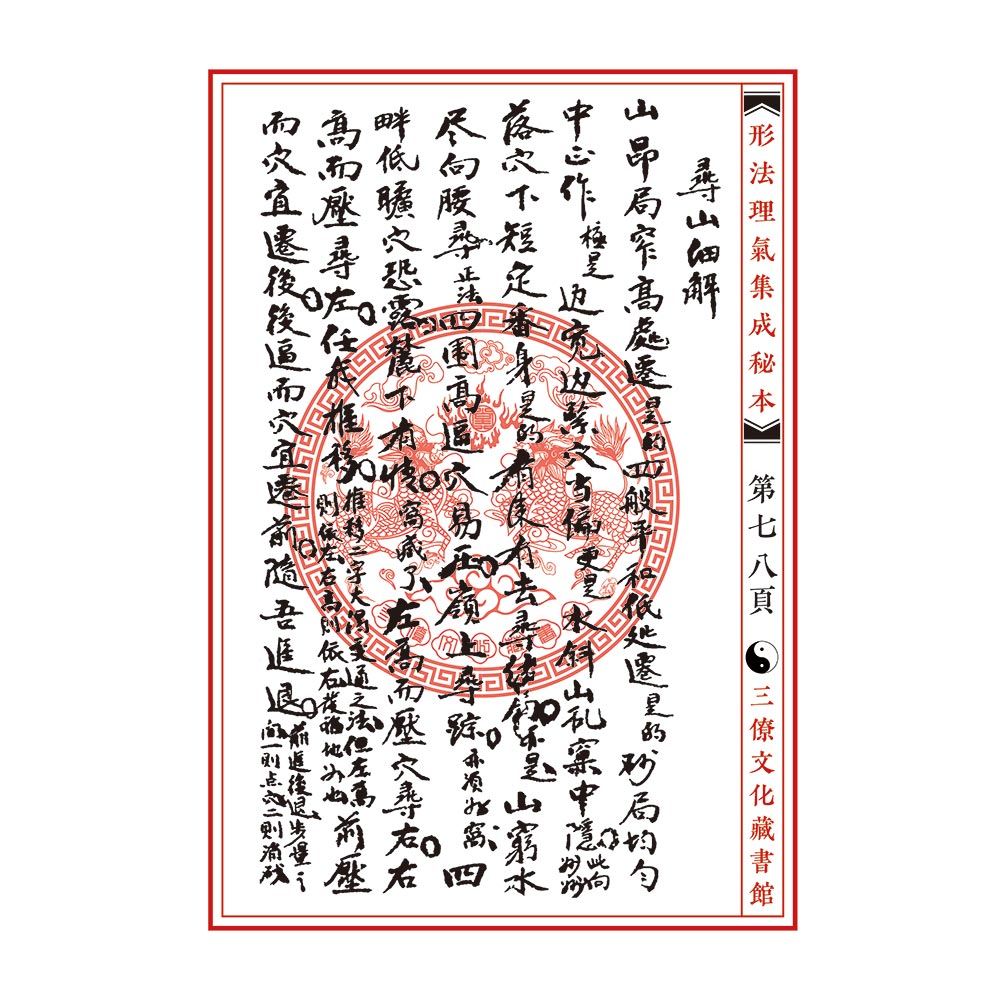 形法理氣集成秘本
第七八頁
三僚文化藏書館
尋山細解
山昂局窄高處遷是的四般平和低处遷是的砂局均勻
中正作極是边宽边紧穴当偏更是水斜山乱窠中隱此向妙妙
落穴下短定番身是的有隻有去尋亦是山窮水
尽向腰尋正法四围高逼穴易正嶺上尋踪亦須窩四
畔低曠穴恐露麓下有情窩減了左高而壓穴尋右右
高而壓尋左任我推移推移二字大渴变通之法但左高則依右高則依右地前壓
而穴宜遷後後逼而穴宜遷前隨吾進退前進後退步量之間一則点穴二則消砂